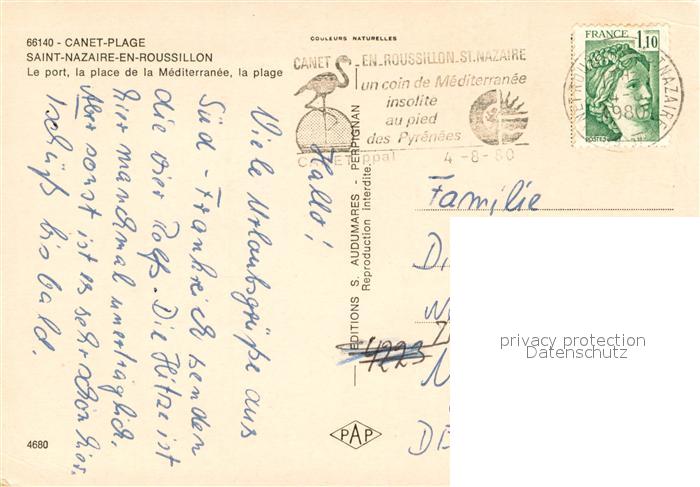 66140 - CANET-PLAGE
SAINT-NAZAIRE-EN-ROUSSILLON
Le port, la place de la Méditerranée, la plage
COULEURS NATURELLES
CANET - EN-ROUSSILLON-ST. NAZAIRE
un coin de Méditerranée
insolite
au pied
des Pyrénées
CANET ppal
4-8-80
FRANCE
1,10
POSTES
1980
Hallo!
Viele Urlaubsgrüße aus
Süd-Frankreich senden
die vier Rolfs. Die Hitze ist
hier manchmal unerträglich.
Aber sonst ist es sehr schön hier.
Tschüß bis bald.
EDITIONS S. AUDUMARES - PERPIGNAN
Reproduction interdite.
Familie
4223
DE
privacy protection
Datenschutz
PAP
4680